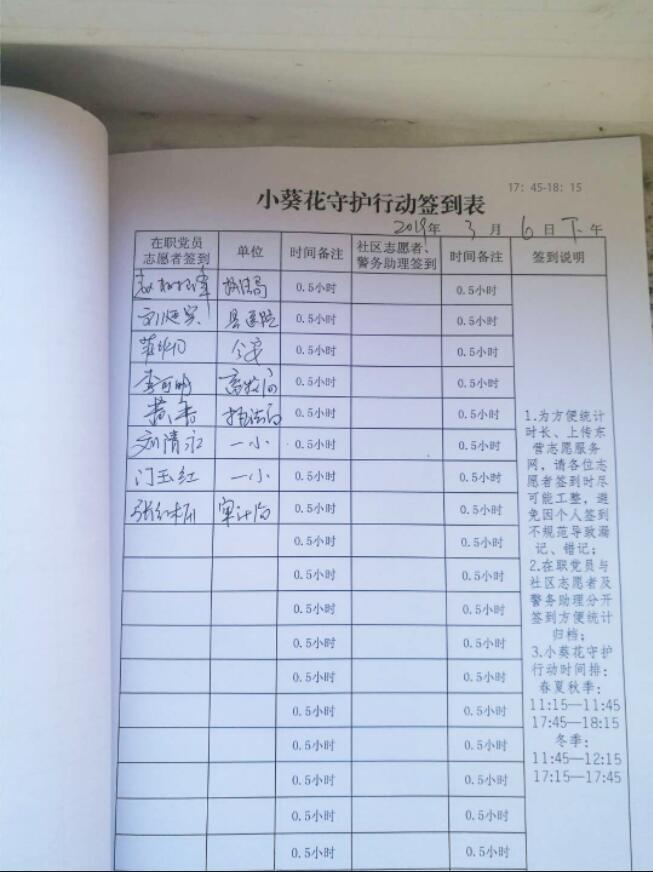 17:45-18:15
小葵花守护行动签到表
2019年 3 月 6 日 下 午
在职党员
志愿者签到
单位
时间备注
社区志愿者、
警务助理签到
时间备注
签到说明
0.5小时 0.5小时
县医院 0.5小时 0.5小时
公安 0.5小时 0.5小时
李可明 畜牧局 0.5小时 0.5小时
执法局 0.5小时 0.5小时
刘清永 一小 0.5小时 0.5小时
门玉红 一小 0.5小时 0.5小时
审计局 0.5小时 0.5小时
0.5小时 0.5小时
0.5小时 0.5小时
0.5小时 0.5小时
0.5小时 0.5小时
0.5小时 0.5小时
0.5小时 0.5小时
0.5小时 0.5小时
0.5小时 0.5小时
0.5小时 0.5小时
0.5小时 0.5小时
1.为方便统计
时长、上传东
营志愿服务
网，请各位志
愿者签到时尽
可能工整，避
免因个人签到
不规范导致漏
记、错记；
2.在职党员与
社区志愿者及
警务助理分开
签到方便统计
归档；
3.小葵花守护
行动时间排：
春夏秋季：
11:15—11:45
17:45—18:15
冬季：
11:45—12:15
17:15—17:45